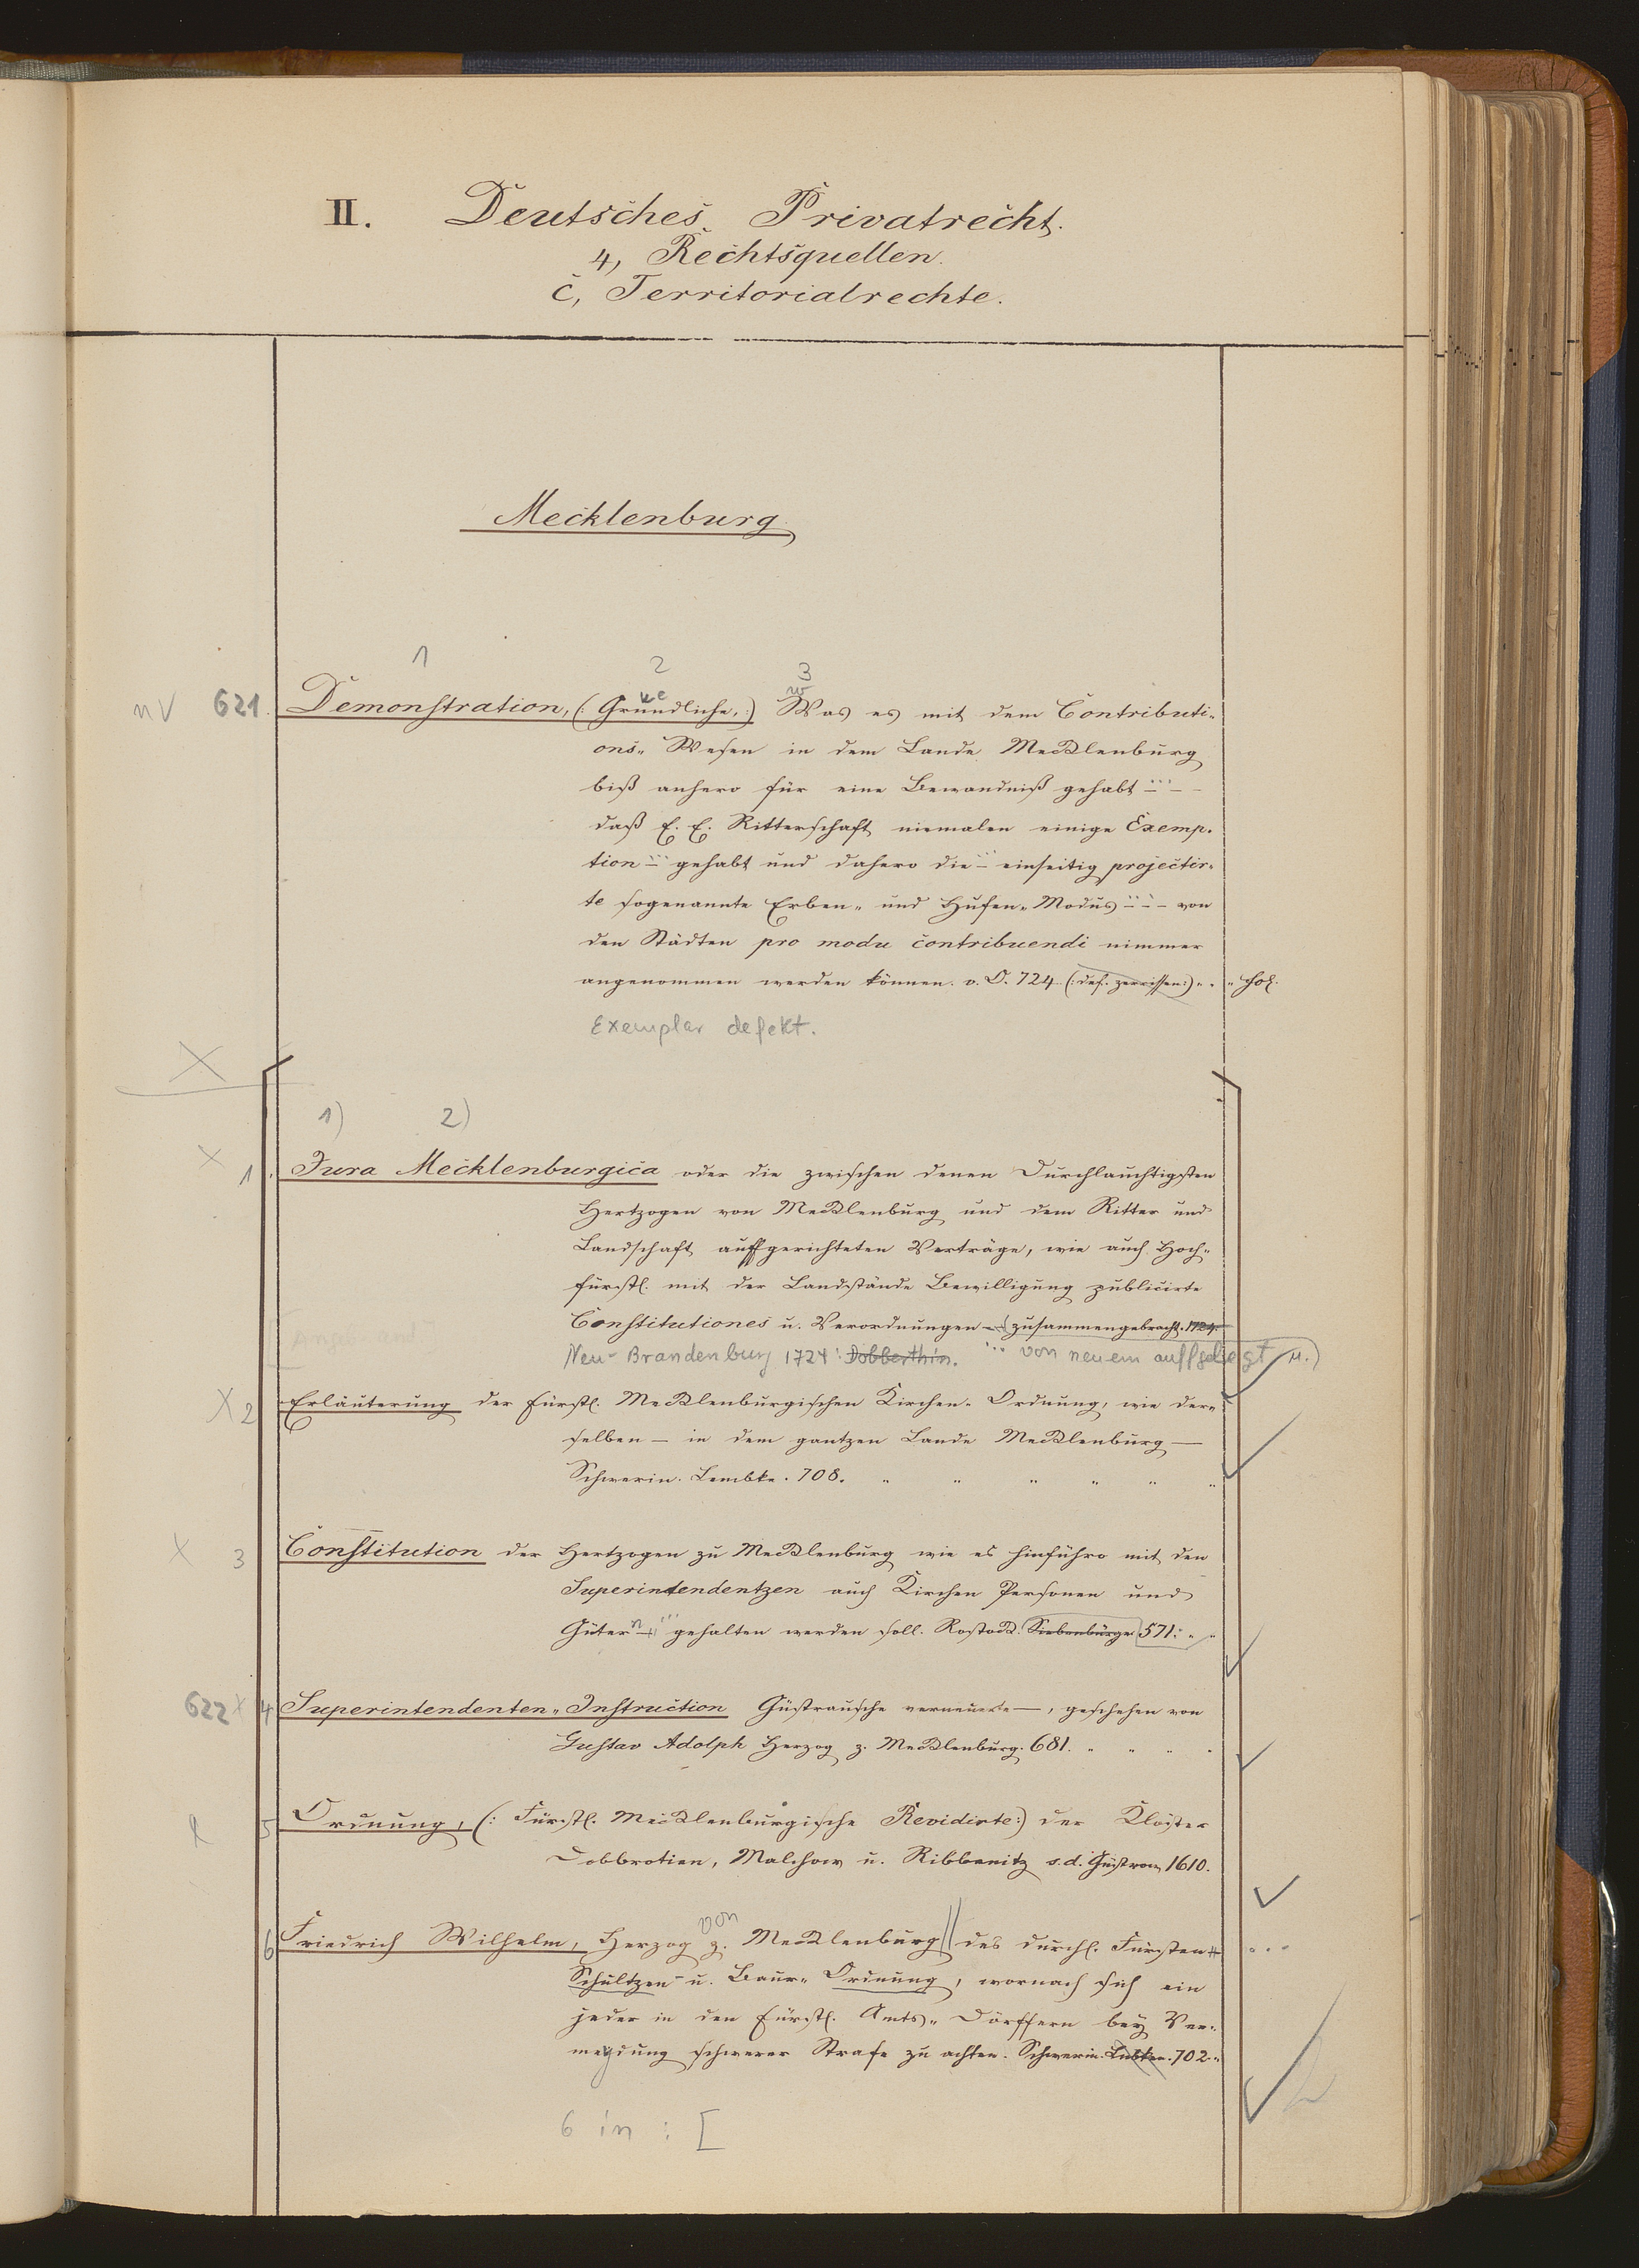 II. Deutsches Privatrecht.
4, Rechtsquellen.
c, Territorialrechte.
Mecklenburg
1 2 3
nV 621. Demonstration, (: Gründliche,:) Was es mit dem Contributi-
ons- Wesen in dem Lande Mecklenburg
biß anhero für eine Bewandniß gehabt ... -
daß E. E. Ritterschaft niemalen einige Exemp-
tion ... gehabt und dahero die ... einseitig projectir-
te sogenannte Erben- und Hufen-Modus ... - von
den Städten pro modu contribuendi nimmer
angenommen werden können. o. O. 724 (: def. zerrissen:) " " " fol.
Exemplar defekt.
X
1) 2)
X 1. Jura Mecklenburgica oder die zwischen denen Durchlauchtigsten
Hertzogen von Mecklenburg und dem Ritter und
Landschaft auffgerichteten Verträge, wie auch Hoch-
fürstl. mit der Landstände Bewilligung publicirte
Constitutiones u. Verordnungen - zusammengebracht. 1724.
Neu-Brandenburg 1724: Dobberthin. ... von neuem auffgelegt
X 2 Erläuterung der Fürstl. Mecklenburgischen Kirchen-Ordnung, wie der-
selben - in dem gantzen Lande Mecklenburg -
Schwerin. Lembke. 708. " " " " " "
X 3 Constitution der Hertzogen zu Mecklenburg wie es hinführo mit den
Superintendentzen auch Kirchen Personen und
Gütern ... gehalten werden soll. Rostock. Siebenbürger 571. " "
622 X 4 Superintendenten-Instruction Güstrausche verneuerte -, geschehen von
Gustav Adolph Herzog z. Mecklenburg. 681. " " " "
5 Ordnung, (: Fürstl. Mecklenburgische Revidirte:) der Kloster
Dobbrotien, Malchow u. Ribbenitz s. d. Güstrow 1610.
von
6 Friedrich Wilhelm, Herzog z. Mecklenburg || des durchl. Fürsten # ...
Schultzen- u. Baur-Ordnung, wornach sich ein
jeder in den Fürstl. Amts-Dörffern bey Ver-
meydung schwerer Strafe zu achten. Schwerin. Lübken. 702 "
6 in : [